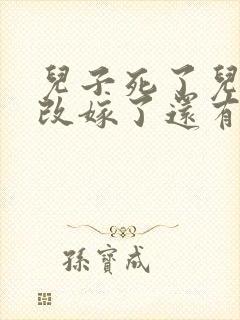 兒子死了兒
改嫁了還有
孫寶成